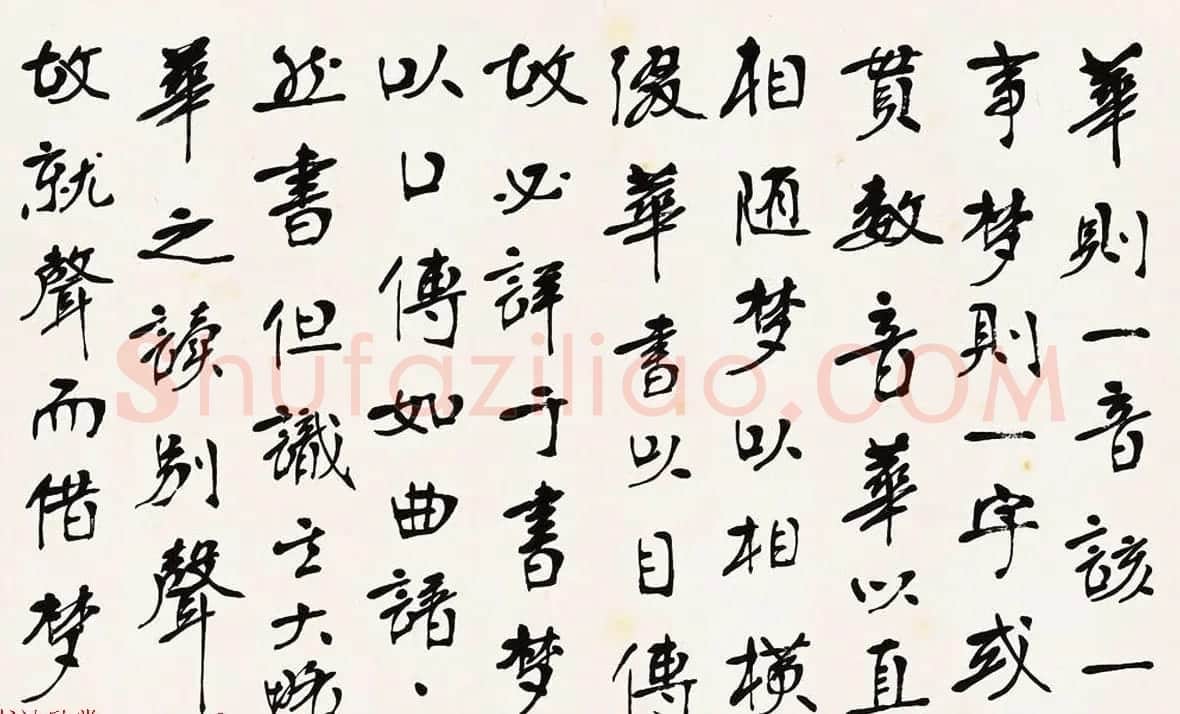 華則一音該一
事梵則一字或
貫數音華以直
相随梵以相橫
綴華書以目傳
故必詳于書梵
以口傳如曲譜、
然書但識其大略
華之讀別聲
故就聲而借梵
Shufaziliao.COM